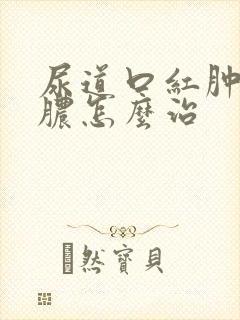 尿道口紅肿
膿怎麼治
然寶貝